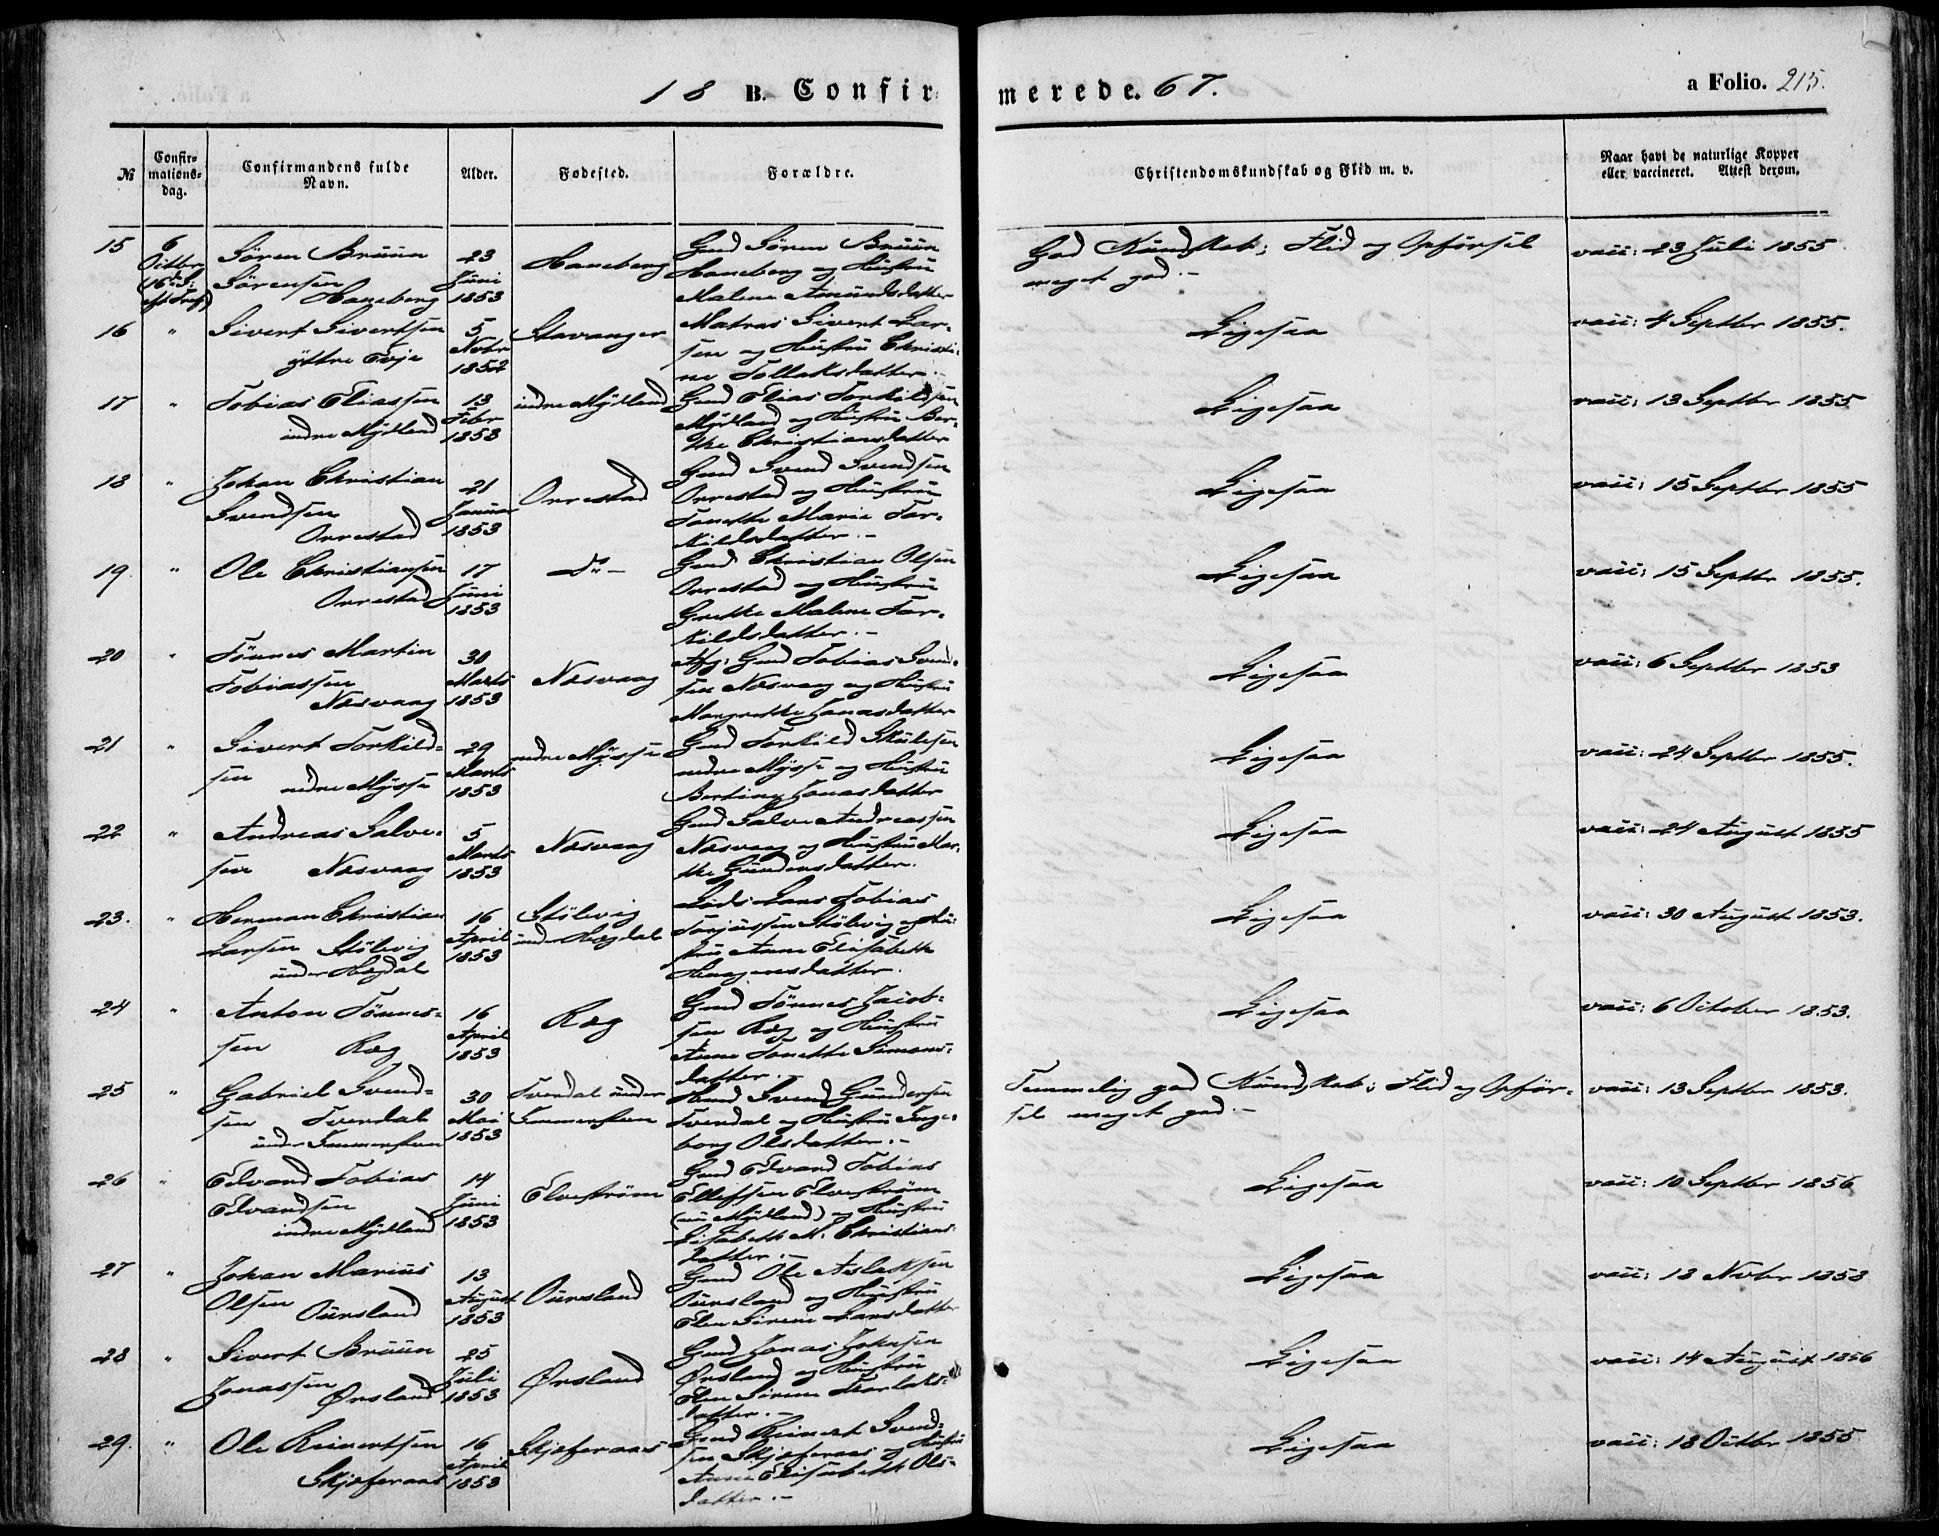 18 B. Confirmerede. 67.
a Folio. 215.
№
Confirmationsdag.
Confirmandens fulde Navn.
Alder.
Fødested.
Forældre.
Christendomskundskab og Flid m. v.
Naar havt de naturlige Kopper
eller vaccineret. Attest derom.
15
6
Octbr
(16de S:
eft Tref)
Sören Brüün
Sörensen
Haneberg
23
Juni
1853
Haneberg
Gmd Sören Brüün
Haneberg og Hustrü
Malene Amundsdatter
God Kundskab; Flid og Opförsel
meget god.–
vacc: 23 Juli 1855
16
"
Sivert Sivertsen
yttre Eyje
5
Novbr
1852
Stavanger
Matros Sivert Lar-
sen og Hustrü Christi-
ne Tollaksdatter.
Ligesaa
vacc: 4 Septbr 1855.
17
"
Tobias Eliassen
indre Mydland
13
Febr
1853
indre Mydland
Gmd Elias Torkildsen
Mydland og Hustrü Ber-
the Christiansdatter
Ligesaa
vacc: 13 Septbr 1855
18
"
Johan Christian
Svendsen
Orrestad
21
Januar
1853
Orrestad
Gmd Svend Svendsen
Orrestad og Hustrü
Tonette Marie Tor-
kildsdatter.–
Ligesaa
vacc: 15 Septbr 1855
19.
"
Ole Christiansen
Orrestad
17
Juni
1853
Do –
Gmd Christian Olsen
Orrestad og Hustrü
Grethe Malene Tor-
kildsdatter.–
Ligesaa
vacc: 15 Septbr 1855.
20
"
Tönnes Martin
Tobiassen
Næsvaag
30
Marts
1853
Næsvaag
Afg: Gmd Tobias Svend-
sen Næsvaag og Hustrü
Margrethe Jonasdatter
Ligesaa
vacc: 6 Septbr 1853
21
"
Sivert Torkild-
sen
nedre Mysse
29
Marts
1853
nedre Mysse
Gmd Torkild Skülesen
nedre Mysse og Hustrü
Bertine Jonasdatter
Ligesaa
vacc: 24 Septbr 1855.
22
"
Andreas Salve-
sen Næsvaag
5
Marts
1853
Næsvaag
Gmd Salve Andreassen
Næsvaag og Hustrü Mar-
the Gundersdatter.
Ligesaa
vacc: 24 August 1855
23.
"
Herman Christian
Larsen Stölevig
under Hægdal
16
April
1853
Stölevig
under Hægdal
Lods Lars Tobias
Torjussen Stölevig og Hu-
strü Anne Elisabeth
Haagensdatter.
Ligesaa
vacc: 30 August 1853.
24
"
Anton Tönnes-
sen Ræg
16
April
1853
Ræg
Gmd Tönnes Jacob-
sen Ræg og Hustrü
Anne Tonette Simons-
datter.–
Ligesaa
vacc: 6 October 1853.
25
"
Gabriel Svend-
sen Tvendal
under
30
Mai
1853
Tvendal under
Hmd Svend Gundersen
Tvendal og Hustrü Inge-
borg Olsdatter.–
Temmelig god Kundskab; Flid og Opför-
sel meget god.–
vacc: 13 Septbr 1853.
26
"
Edvard Tobias
Edvardsen
indre Mydland
14
Juni
1853
Elveström
Gmd Edvard Tobias
Ellefsen Elveström
(nu Mydland) og Hustrü
Lisabeth M. Christians-
datter.–
Ligesaa
vacc: 10 Septbr 1856
27
"
Johan Marius
Olsen Oursland
13
August
1853
Oursland
Gmd Ole Aslaksen
Oursland og Hustrü
Elen Sirene Larsdatter
Ligesaa
vacc: 13 Novbr 1853
28
"
Sivert Brüün
Jonassen
Ørsland
25
Juli
1853
Ørsland
Gmd Jonas Johnsen
Ørsland og Hustrü
Elen Sirene
datter.–
Ligesaa
vacc: 14 August 1856
29.
"
Ole Reinertsen
Skjæferaas
16
April
1853
Skjæferaas
Gmd Reinert Svend-
sen Skjæferaas og Hustrü
Anne Elisabeth Ols-
datter.–
Ligesaa
vacc: 18 Octbr 1855